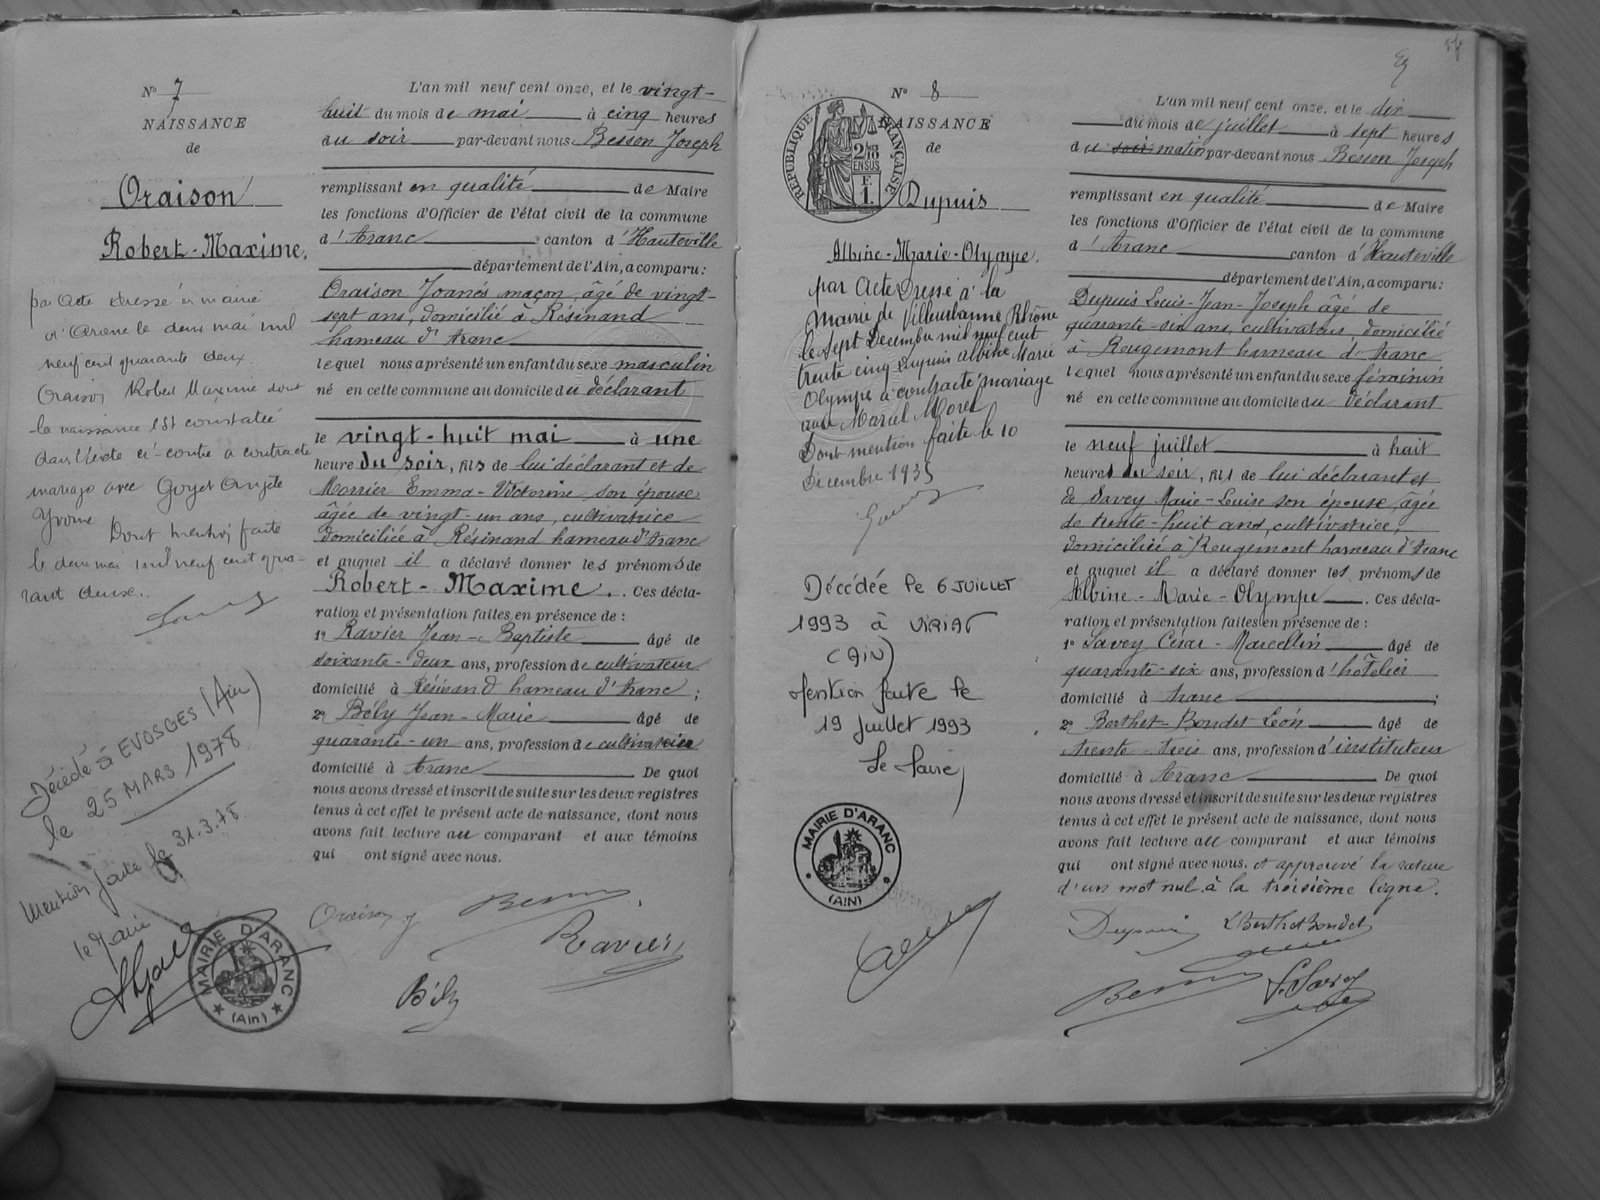 N° 7
NAISSANCE
de
Oraison
Robert-Maxime.
par acte dressé en mairie
d'Aranc le deux mai mil
neuf cent quarante deux
Oraison Robert Maxime dont
la naissance est constatée
dans l'acte ci-contre a contracté
mariage avec Goyet Angèle
Yvonne Dont mention faite
le deux mai mil neuf cent qua-
rante deux.
Décédé à EVOSGES (Ain)
le 25 MARS 1978
Mention faite le 31.3.78
le Maire
MAIRIE D'ARANC
(Ain)
L'an mil neuf cent onze, et le vingt-
huit du mois de mai à cinq heures
du soir par-devant nous Besson Joseph
remplissant en qualité de Maire
les fonctions d'Officier de l'état civil de la commune
d'Aranc canton d'Hauteville
département de l'Ain, a comparu :
Oraison Joanès maçon, âgé de vingt-
sept ans, domicilié à Résinand
hameau d'Aranc
lequel nous a présenté un enfant du sexe masculin
né en cette commune au domicile du déclarant
le vingt-huit mai à une
heure du soir, fils de lui déclarant et de
Morrier Emma-Victorine, son épouse
âgée de vingt-un ans, cultivatrice
domiciliée à Résinand hameau d'Aranc
et auquel il a déclaré donner les prénoms de
Robert-Maxime. Ces décla-
ration et présentation faites en présence de :
1° Ravier Jean-Baptiste âgé de
soixante-deux ans, profession de cultivateur
domicilié à Résinand hameau d'Aranc ;
2° Bély Jean-Marie âgé de
quarante-un ans, profession de cultivateur
domicilié à Aranc De quoi
nous avons dressé et inscrit de suite sur les deux registres
tenus à cet effet le présent acte de naissance, dont nous
avons fait lecture au comparant et aux témoins
qui ont signé avec nous.
Oraison J
Besson
Ravier
Bély
N° 8
NAISSANCE
de
RÉPUBLIQUE FRANÇAISE
2/10 EN SUS
F.
1.
Dupuis
Albine-Marie-Olympe.
par Acte Dressé à la
Mairie de Villeurbanne Rhône
le Sept Decembre mil neuf cent
trente cinq Dupuis Albine Marie
Olympe a contracté mariage
avec Marcel Morel
Dont mention faite le 10
Décembre 1935
Décédée le 6 JUILLET
1993 à VIRIAT
(AIN)
Mention faite le
19 Juillet 1993
Le Maire
MAIRIE D'ARANC
(AIN)
L'an mil neuf cent onze, et le dix
du mois de juillet à sept heures
du soir matin par-devant nous Besson Joseph
remplissant en qualité de Maire
les fonctions d'Officier de l'état civil de la commune
d'Aranc canton d'Hauteville
département de l'Ain, a comparu :
Dupuis Louis-Jean-Joseph âgé de
quarante-six ans, cultivateur, domicilié
à Rougemont hameau d'Aranc
lequel nous a présenté un enfant du sexe féminin
né en cette commune au domicile du déclarant
le neuf juillet à huit
heures du soir, fils de lui déclarant et
de Savey Marie-Louise son épouse, âgée
de trente-huit ans, cultivatrice,
domiciliée à Rougemont hameau d'Aranc
et auquel il a déclaré donner les prénoms de
Albine-Marie-Olympe. Ces décla-
ration et présentation faites en présence de :
1° Savey César-Marcellin âgé de
quarante-six ans, profession d'hôtelier
domicilié à Aranc ;
2° Berthet-Bondet Léon âgé de
trente-trois ans, profession d'instituteur
domicilié à Aranc De quoi
nous avons dressé et inscrit de suite sur les deux registres
tenus à cet effet le présent acte de naissance, dont nous
avons fait lecture au comparant et aux témoins
qui ont signé avec nous. et approuvé la rature
d'un mot nul à la troisième ligne.
Dupuis
LBerthetBondet
Besson